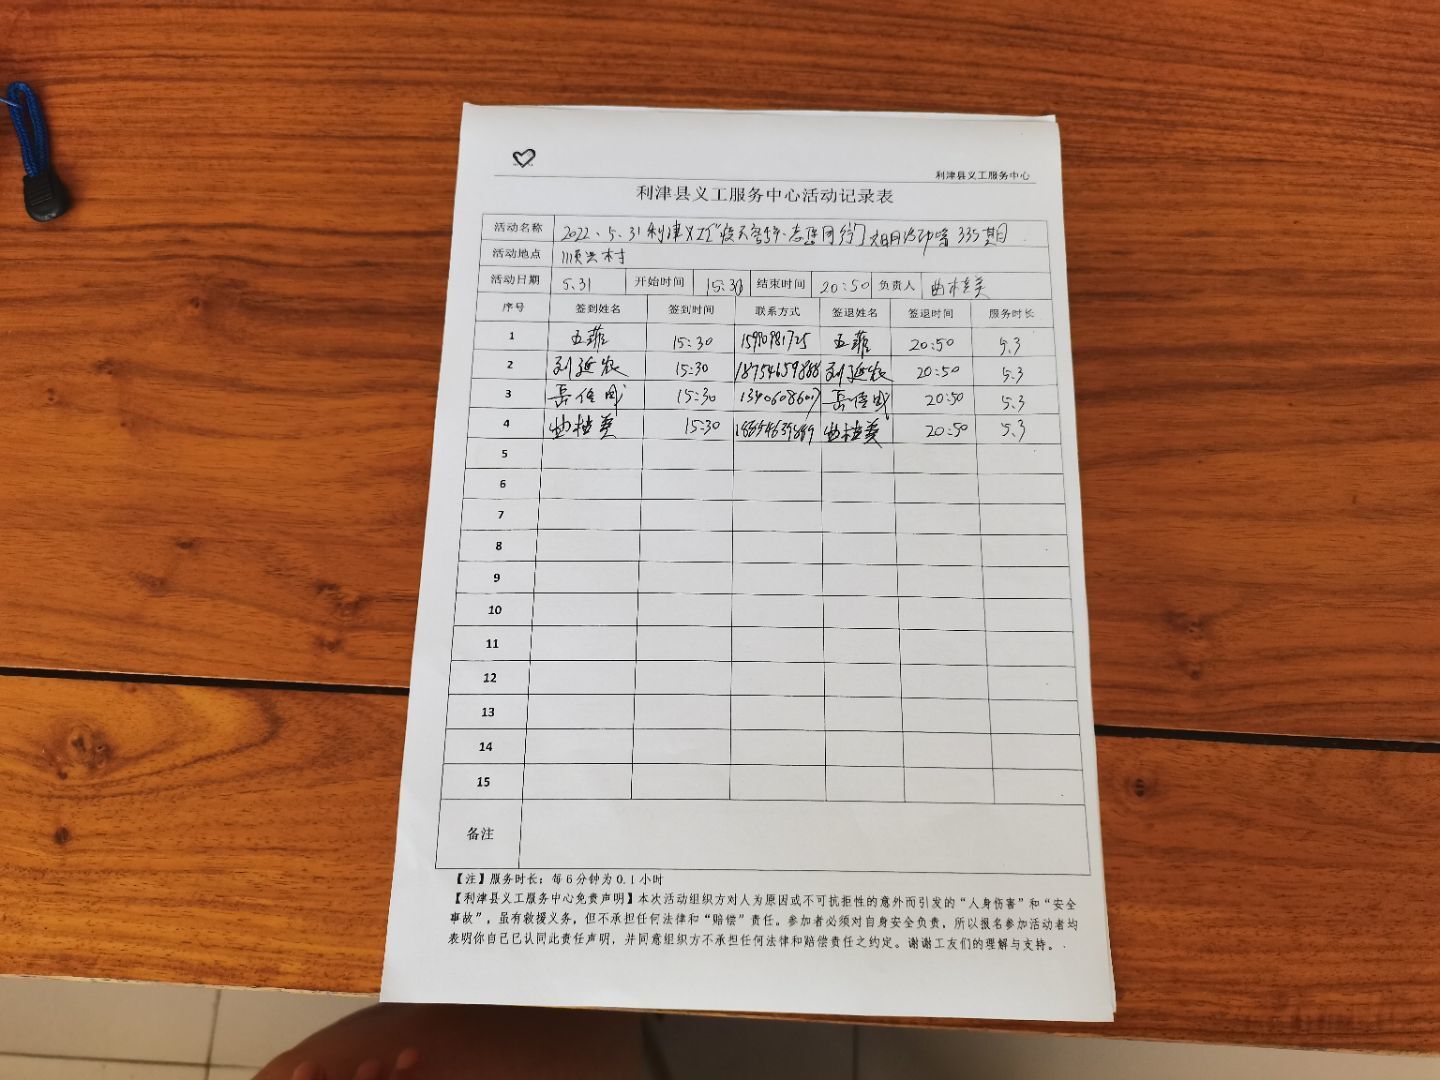 利津县义工服务中心
利津县义工服务中心活动记录表
活动名称 2022、5、31 利津义工 335期
活动地点 顺兴村
活动日期 5.31 开始时间 15:30 结束时间 20:50 负责人 曲桂美
序号 签到姓名 签到时间 联系方式 签退姓名 签退时间 服务时长
1 15:30 20:50 5.3
2 刘延农 15:30 18754659888 刘延农 20:50 5.3
3 岳 15:30 岳 20:50 5.3
4 曲桂美 15:30 曲桂美 20:50 5.3
5
6
7
8
9
10
11
12
13
14
15
备注
【注】服务时长：每6分钟为0.1小时
【利津县义工服务中心免责声明】本次活动组织方对人为原因或不可抗拒性的意外而引发的“人身伤害”和“安全
事故”，虽有救援义务，但不承担任何法律和“赔偿”责任。参加者必须对自身安全负责，所以报名参加活动者均
表明你自己已认同此责任声明，并同意组织方不承担任何法律和赔偿责任之约定。谢谢工友们的理解与支持。